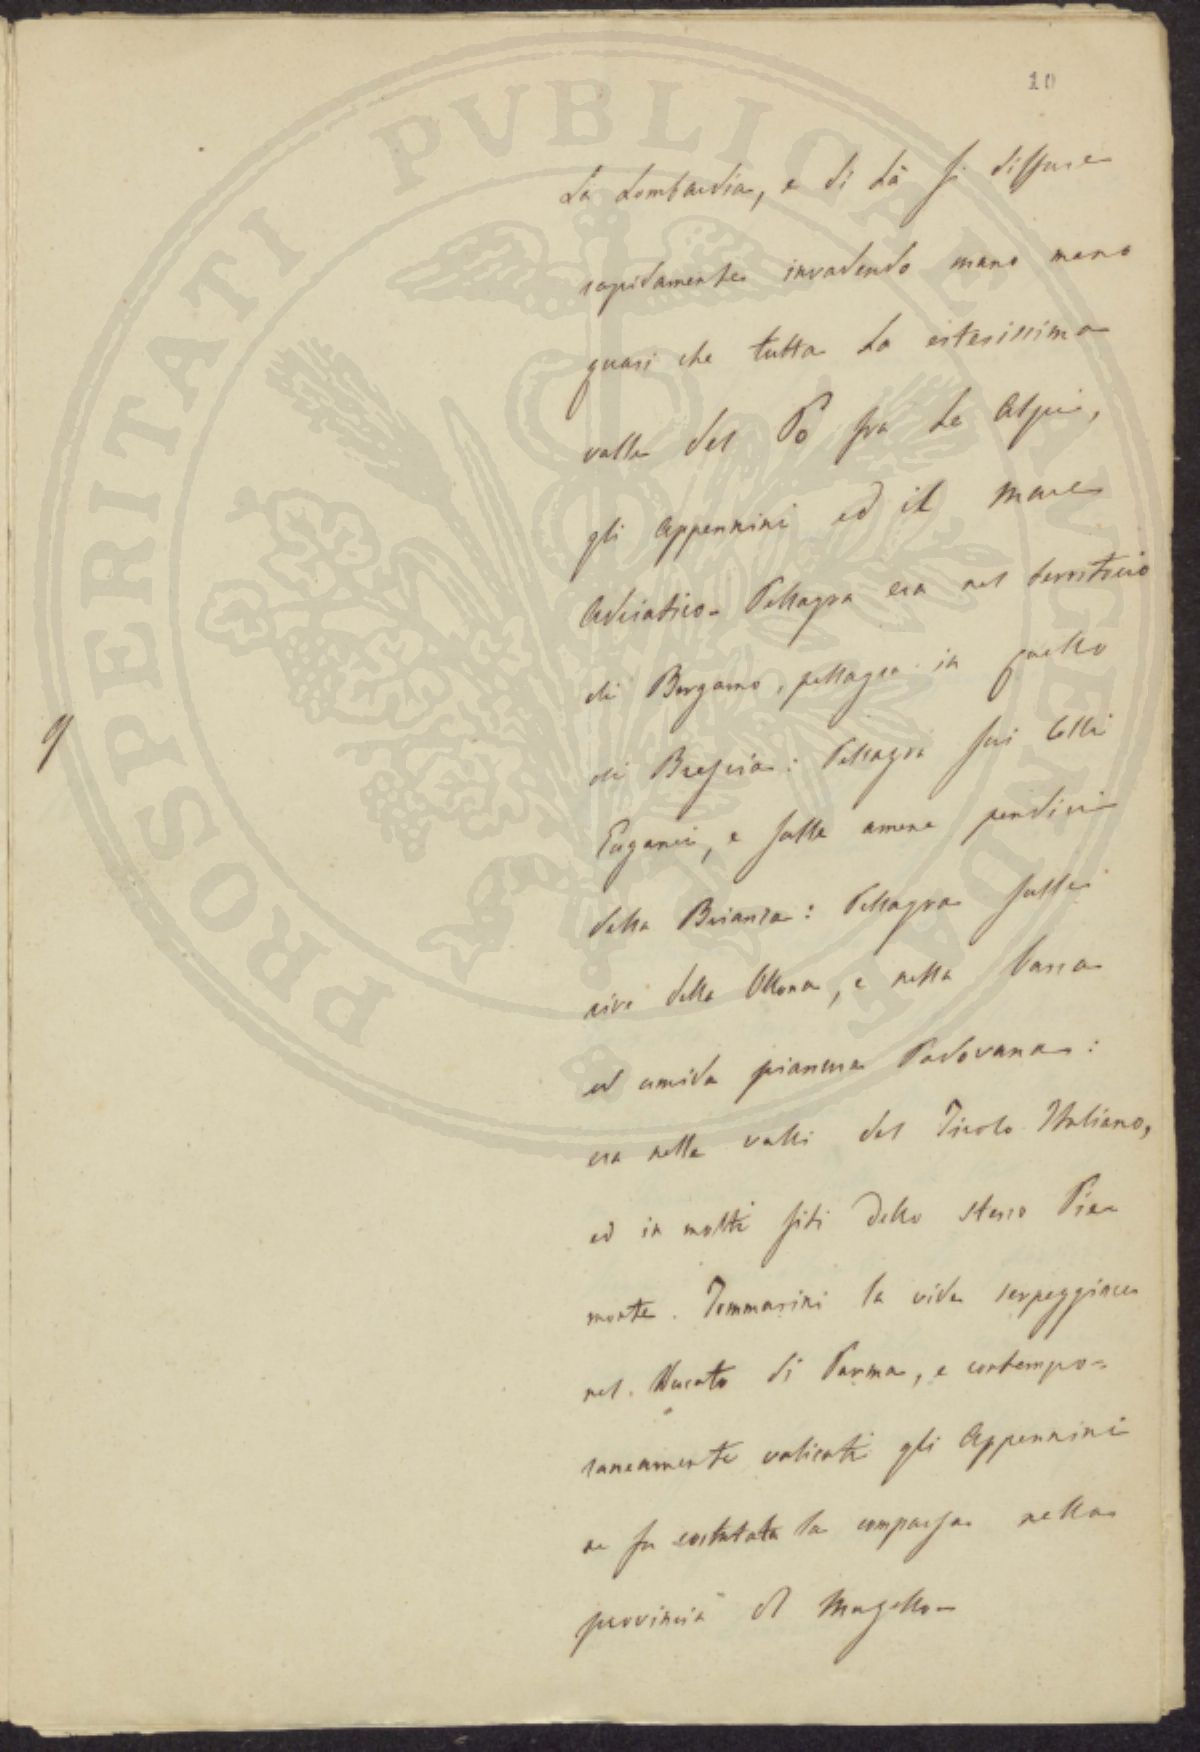 10
La Lombardia, e di là si diffuse
rapidamente invadendo mano mano
quasi che tutta la estesissima
valle del Pò fra le Alpi,
gli Appennini ed il mare
Adriatico. Pellagra era nel territorio
di Bergamo, pellagra in quello
di Brescia: Pellagra sui Colli
9
Euganei, e sulle amene pendici
della Brianza: Pellagra sulle
rive della Ollona, e nella bassa
ed umida pianura Padovana:
era nelle valli del Tirolo Italiano,
ed in molti siti dello stesso Pie
monte. Tommasini la vide serpeggiare
nel Ducato di Parma, e contempo=
raneamente valicati gli Appennini
ne fu costatata la comparsa nella
provincia di Mugello.
PROSPERITATI PVBLICAE AVGENDAE